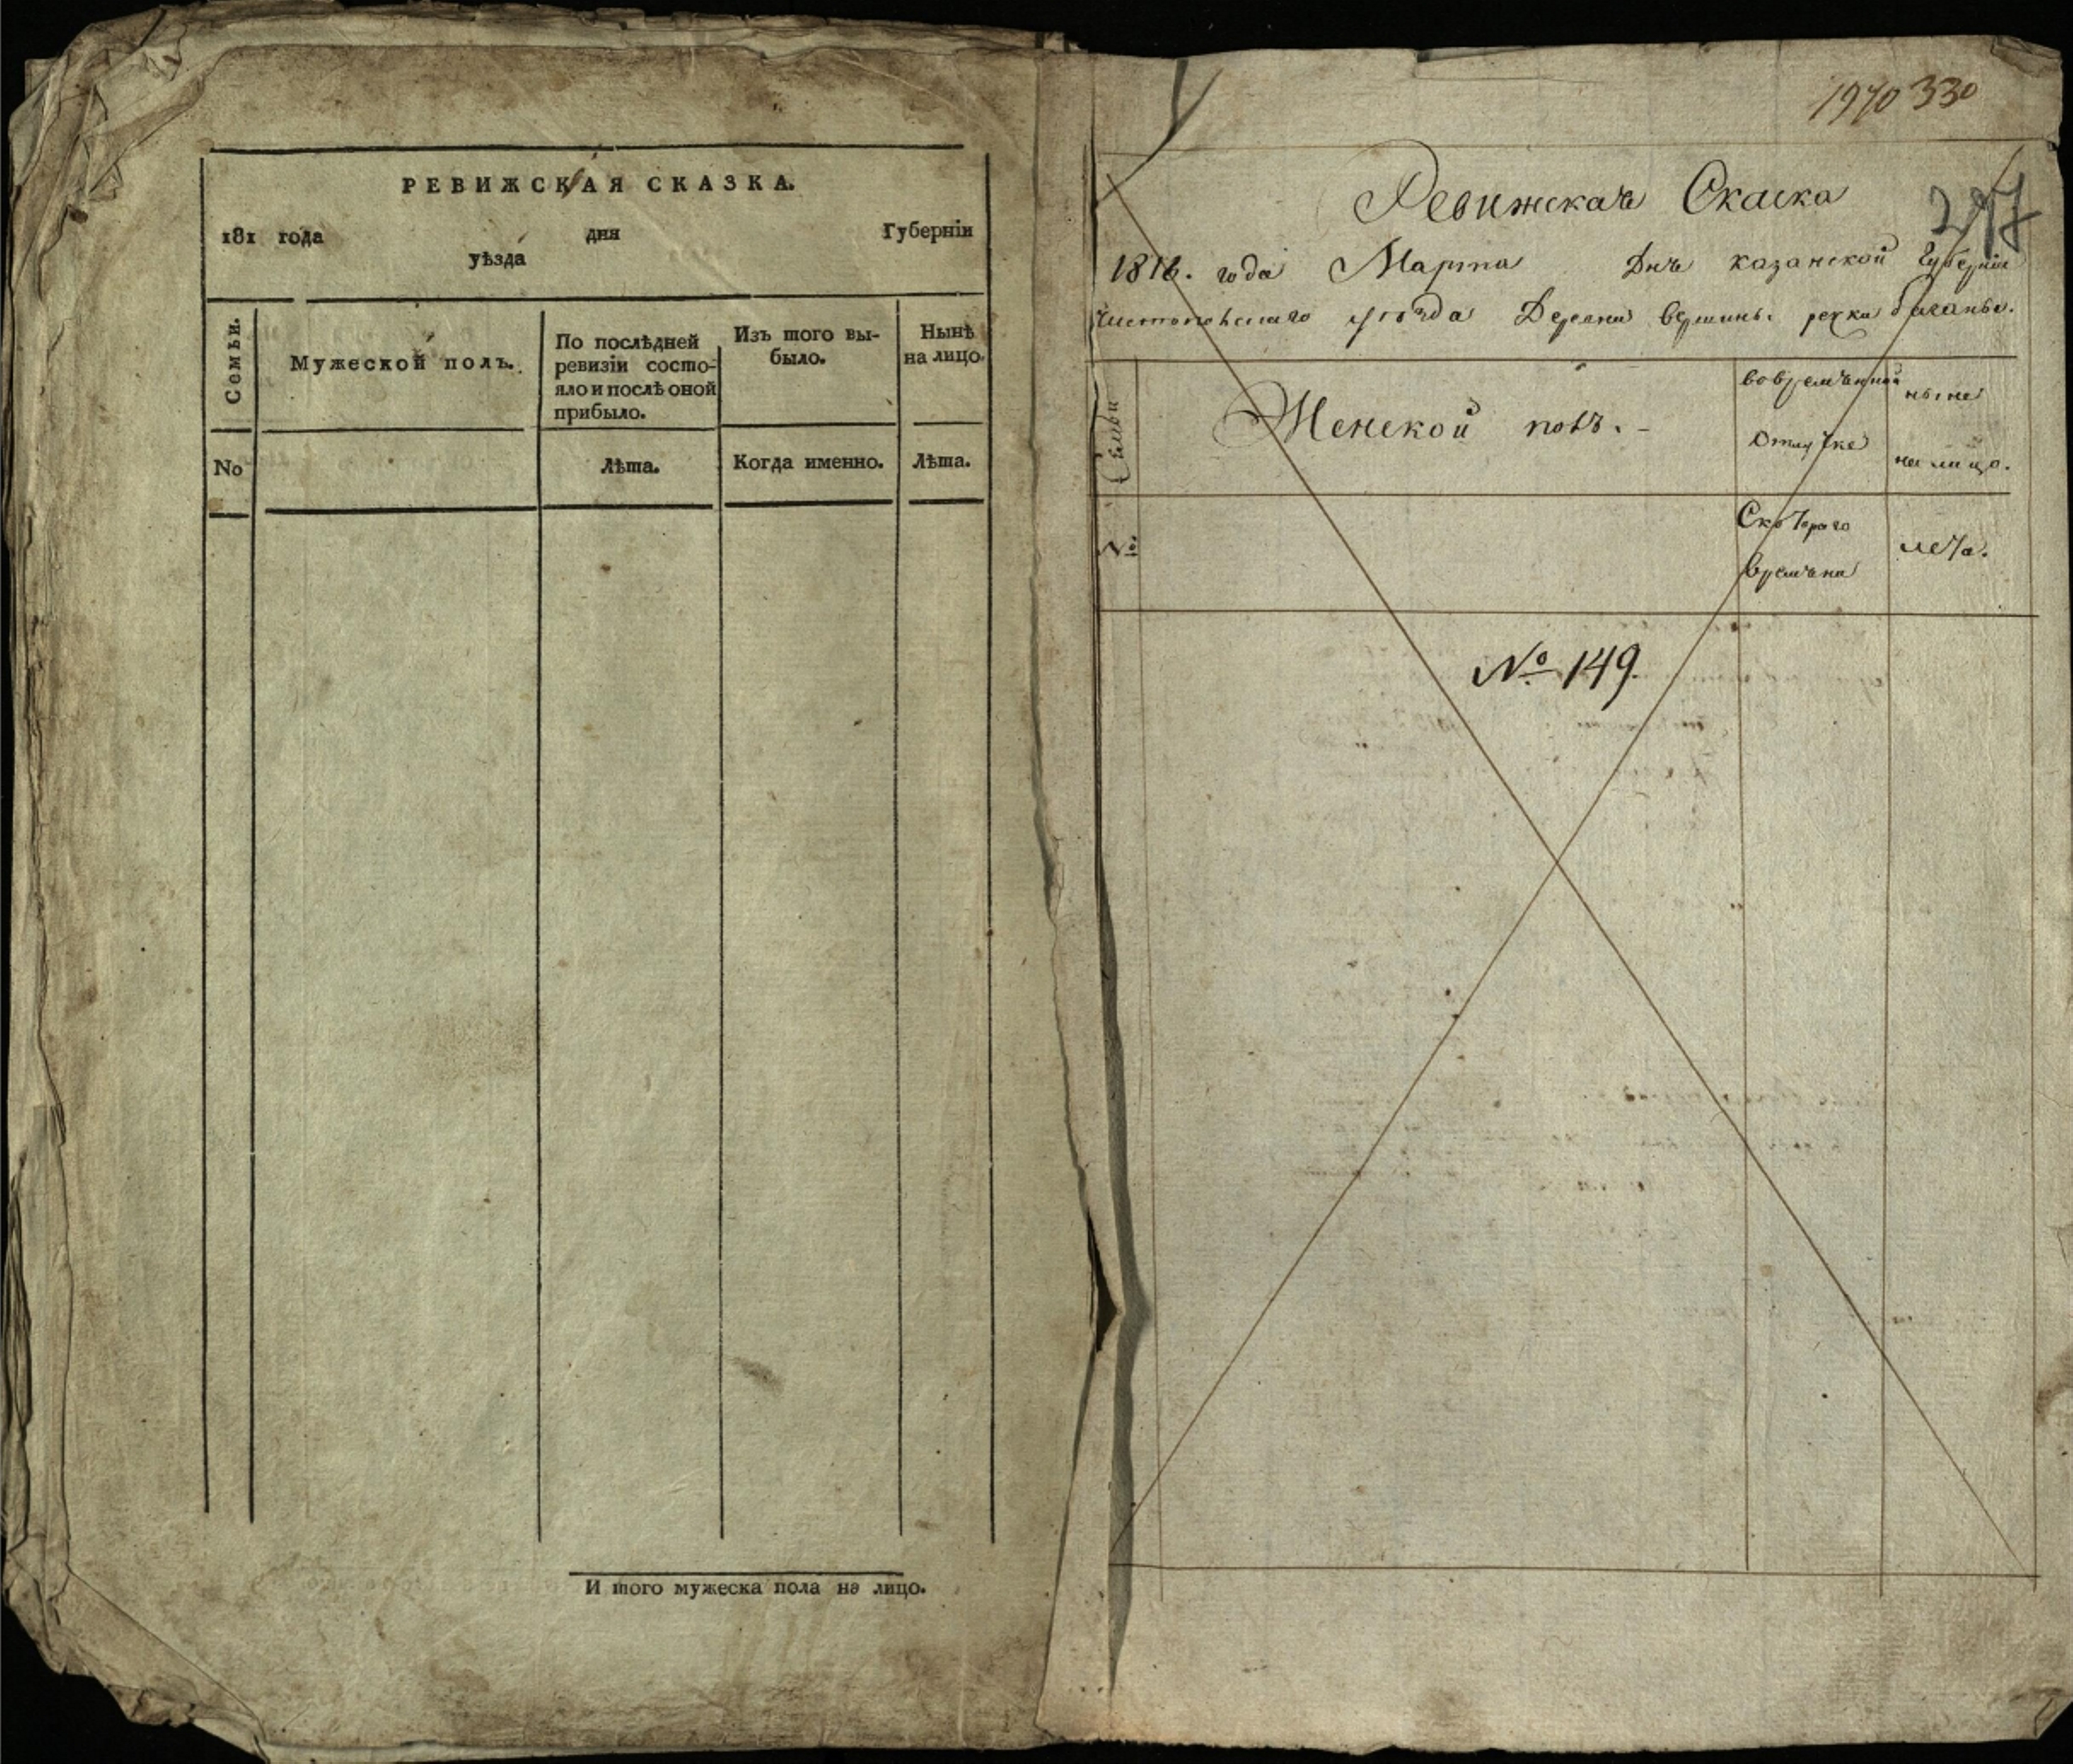 РЕВИЖСКАЯ СКАЗКА.
181 года дня Губерніи
уѣзда
Семьи.
Мужеской полъ.
По послѣдней
ревизіи состо-
яло и послѣ оной
прибыло.
Изъ того вы-
было.
Нынѣ
на лицо.
No
Лѣта.
Когда именно.
Лѣта.
И того мужеска пола на лицо.
1970 330
Ревижская Скаска
247
1816. года Марта Дня казанской Губерніи
Чистопольскаго уезда Деревни вершины речки баганы.
Семьи
Женской полъ. -
во времянной
отлучке
ныне
на лицо.
№
Скотораго
времяни
лета.
№ 149.